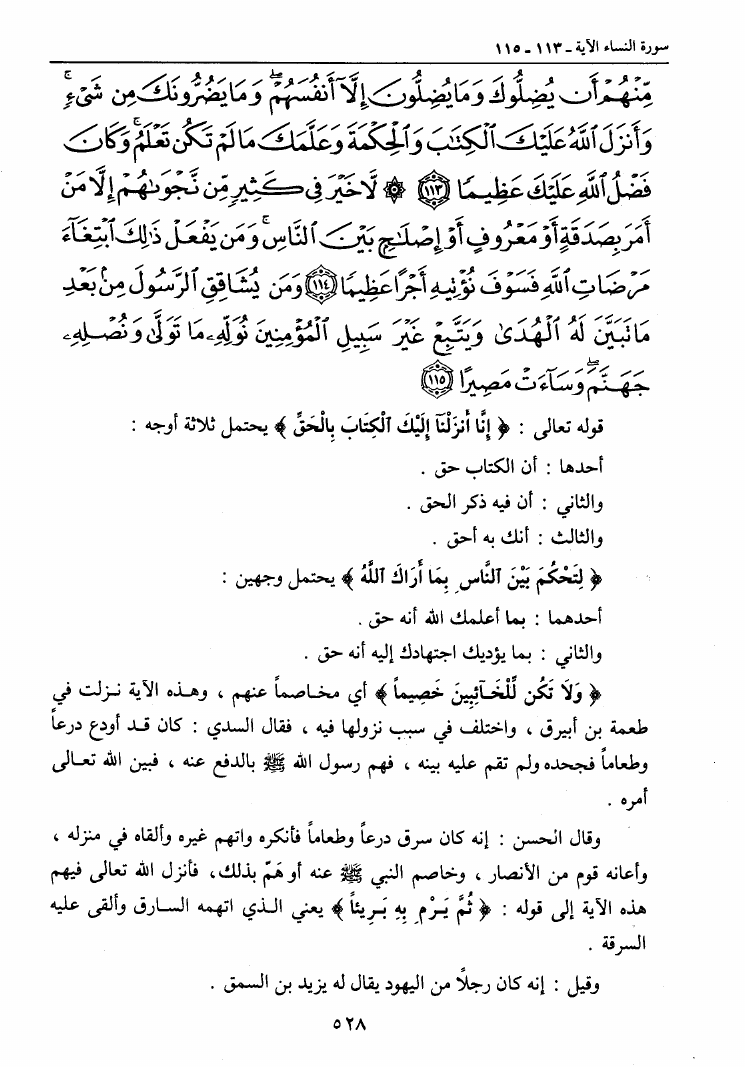 سورة النساء الآية ـ ١١٣ ـ ١١٥
مِّنْهُمْ أَن يُضِلُّوكَ وَمَا يُضِلُّونَ إِلَّآ أَنفُسَهُمْ ۖ وَمَا يَضُرُّونَكَ مِن شَىْءٍ ۚ
وَأَنزَلَ ٱللَّهُ عَلَيْكَ ٱلْكِتَٰبَ وَٱلْحِكْمَةَ وَعَلَّمَكَ مَا لَمْ تَكُن تَعْلَمُ ۚ وَكَانَ
فَضْلُ ٱللَّهِ عَلَيْكَ عَظِيمًا ﴿١١٣﴾ ۞ لَّا خَيْرَ فِى كَثِيرٍ مِّن نَّجْوَىٰهُمْ إِلَّا مَنْ
أَمَرَ بِصَدَقَةٍ أَوْ مَعْرُوفٍ أَوْ إِصْلَٰحٍۭ بَيْنَ ٱلنَّاسِ ۚ وَمَن يَفْعَلْ ذَٰلِكَ ٱبْتِغَآءَ
مَرْضَاتِ ٱللَّهِ فَسَوْفَ نُؤْتِيهِ أَجْرًا عَظِيمًا ﴿١١٤﴾ وَمَن يُشَاقِقِ ٱلرَّسُولَ مِنۢ بَعْدِ
مَا تَبَيَّنَ لَهُ ٱلْهُدَىٰ وَيَتَّبِعْ غَيْرَ سَبِيلِ ٱلْمُؤْمِنِينَ نُوَلِّهِۦ مَا تَوَلَّىٰ وَنُصْلِهِۦ
جَهَنَّمَ ۖ وَسَآءَتْ مَصِيرًا ﴿١١٥﴾
قوله تعالى : ﴿ إِنَّا أَنزَلْنَآ إِلَيْكَ ٱلْكِتَابَ بِالْحَقِّ ﴾ يحتمل ثلاثة أوجه :
أحدها : أن الكتاب حق .
والثاني : أن فيه ذكر الحق .
والثالث : أنك به أحق .
﴿ لِتَحْكُمَ بَيْنَ ٱلنَّاسِ بِمَا أَرَاكَ ٱللَّهُ ﴾ يحتمل وجهين :
أحدهما : بما أعلمك الله أنه حق .
والثاني : بما يؤديك اجتهادك إليه أنه حق .
﴿ وَلَا تَكُن لِّلْخَآئِنِينَ خَصِيماً ﴾ أي مخاصماً عنهم ، وهذه الآية نزلت في
طعمة بن أبيرق ، واختلف في سبب نزولها فيه ، فقال السدي : كان قد أودع درعاً
وطعاماً فجحده ولم تقم عليه بينه ، فهم رسول الله ﷺ بالدفع عنه ، فبين الله تعالى
أمره .
وقال الحسن : إنه كان سرق درعاً وطعاماً فأنكره واتهم غيره وألقاه في منزله ،
وأعانه قوم من الأنصار ، وخاصم النبي ﷺ عنه أو هَمّ بذلك، فأنزل الله تعالى فيهم
هذه الآية إلى قوله : ﴿ ثُمَّ يَرْمِ بِهِ بَرِيئاً ﴾ يعني الذي اتهمه السارق وألقى عليه
السرقة .
وقيل : إنه كان رجلاً من اليهود يقال له يزيد بن السمق .
٥٢٨